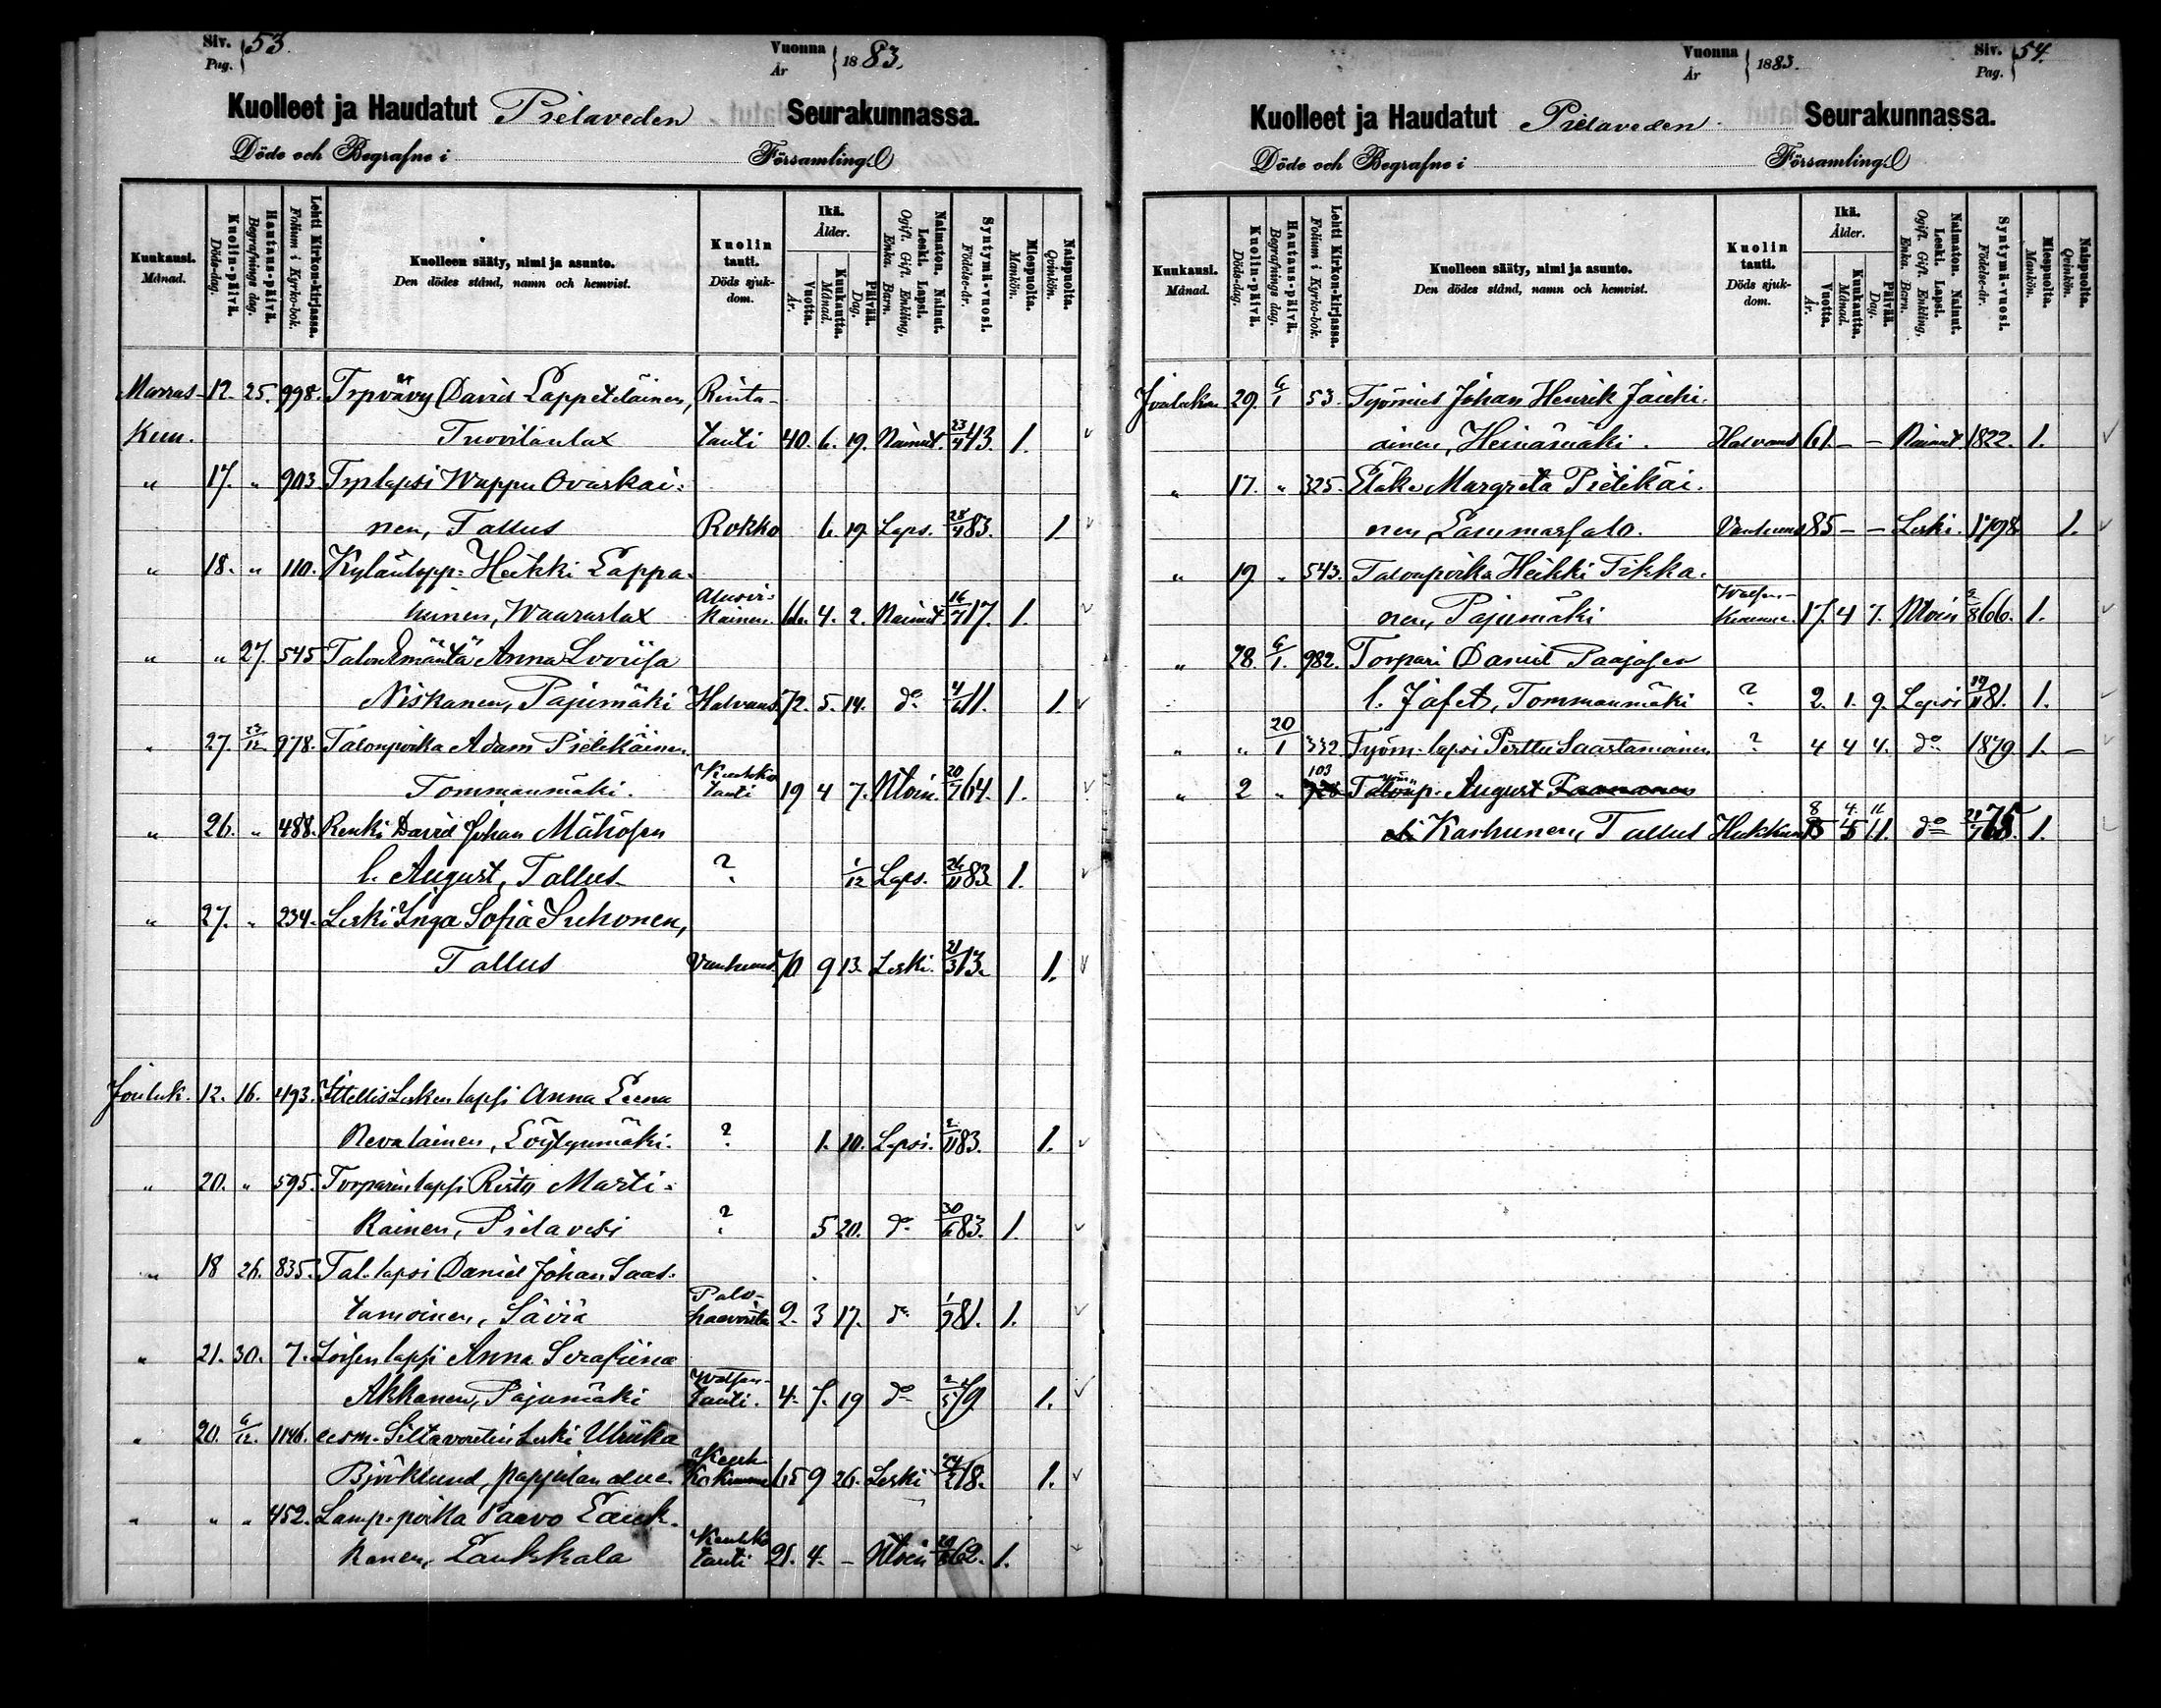 Siv. Pag. 53.
Vuonna År 1883.
Kuolleet ja Haudatut Pielaveden Seurakunnassa.
Döde och Begrafne i Församling.
Kuukausi. Månad.
Kuolin-päivä. Döds-dag.
Hautaus-päivä. Begrafnings dag.
Lehti Kirkon-kirjassa. Folium i Kyrko-bok.
Kuolleen sääty, nimi ja asunto. Den dödes stånd, namn och hemvist.
Kuolin tauti. Döds sjukdom.
Ikä. Ålder.
Vuotta. År.
Kuukautta. Månad.
Päivää. Dag.
Naimaton. Nainut. Leski. Lapsi. Ogift. Gift. Enkling, Enka. Barn.
Syntymä-vuosi. Födelse-år.
Miespuolta. Mankön.
Naispuolta. Qvinkön.
Marras- 12. 25. 998. Trpvävy David Lappeteläinen, Rinta-
Kuu. Tuovilanlax tauti 40. 6. 19. Nainut. 23/4 43. 1.
" 17. " 903. Trplapsi Wappu Ovaskai-
nen, Tallus Rokko 6. 19. Laps. 28/4 83. 1.
" 18. " 110. Kyläulopp: Heikki Lappa-
lainen, Waaraslax 66. 4. 2. Nainut 16/7 17. 1.
" " 27. 545 Talon Emäntä Anna Loviisa
Niskanen, Pajumäki Halvaus. 72. 5. 14. do 11. 1.
" 27. 978. Talonpoika Adam Pietikäinen
Tommanmäki. Keuhko tauti 19 4 7. Ntoin. 20/7 64. 1.
" 26. " 488. Renki David Johan Mähösen
l. August, Tallus ? 1/12 Laps. 26/11 83. 1.
" 27. " 234. Leski Inga Sofia Suhonen,
Tallus Vanhuus. 70 9 13. Leski. 21/3 13. 1.
Jouluk. 12. 16. 493. Ittellis Lesken lapsi Anna Leena
Nevalainen, Löytynmäki. ? 1. 10. Lapsi. 2/11 83. 1.
" 20. " 595. Torparin lapsi Risto Marti-
kainen, Pielavesi ? 5 20. do 30/6 83. 1.
" 18 26. 835. Tal. lapsi Daniel Johan Saas-
tamoinen, Säviä Palo-haavoista 2. 3 17. do 1/9 81. 1.
" 21. 30. 7. Loisen lapsi Anna Serafiina
Akkanen, Pajumäki Watsan-tauti. 4. 7. 19 do 2/5 79. 1.
" 20. 6/12. 1146. eesm. Siltavoutin Leski Ulriika
Björklund, pappilan alue 65 9 26. Leski 18. 1.
" " " 452. Lamp. poika Paavo Lauk-
kanen, Laukkala Keuhko tauti 21. 4. - Ntoin 62. 1.
Vuonna År 1883.
Siv. Pag. 54.
Kuolleet ja Haudatut Pielaveden Seurakunnassa.
Döde och Begrafne i Församling.
Kuukausi. Månad.
Kuolin-päivä. Döds-dag.
Hautaus-päivä. Begrafnings dag.
Lehti Kirkon-kirjassa. Folium i Kyrko-bok.
Kuolleen sääty, nimi ja asunto. Den dödes stånd, namn och hemvist.
Kuolin tauti. Döds sjukdom.
Ikä. Ålder.
Vuotta. År.
Kuukautta. Månad.
Päivää. Dag.
Naimaton. Nainut. Leski. Lapsi. Ogift. Gift. Enkling, Enka. Barn.
Syntymä-vuosi. Födelse-år.
Miespuolta. Mankön.
Naispuolta. Qvinkön.
Jouluku 29. 6/1 53. Työmies Johan Henrik Jauhi-
ainen, Heinämäki. Halvaus 61. - - Nainut 1822. 1.
" 17. " 325. Eläke Margreta Pietikäi-
nen Lammassalo. Vanhuus 85 - - Leski. 1798 1.
" 19 " 543. Talonpoika Heikki Tikka-
nen, Pajumäki 17. 4 7. Ntoin 2/8 66. 1.
" 28. 6/1. 982. Torpari Daniel Paajasen
l. Jafet, Tommanmäki ? 2. 1. 9. Lapsi 19/11 81. 1.
" " 20/1 332. Työm. lapsi Perttu Saastamoinen ? 4 4 4. do 1879. 1. -
" 2 " 103 Talonp. August Paananen
Karhunen, Tallus Hukkun 8 4 11. do 21/7 75. 1.